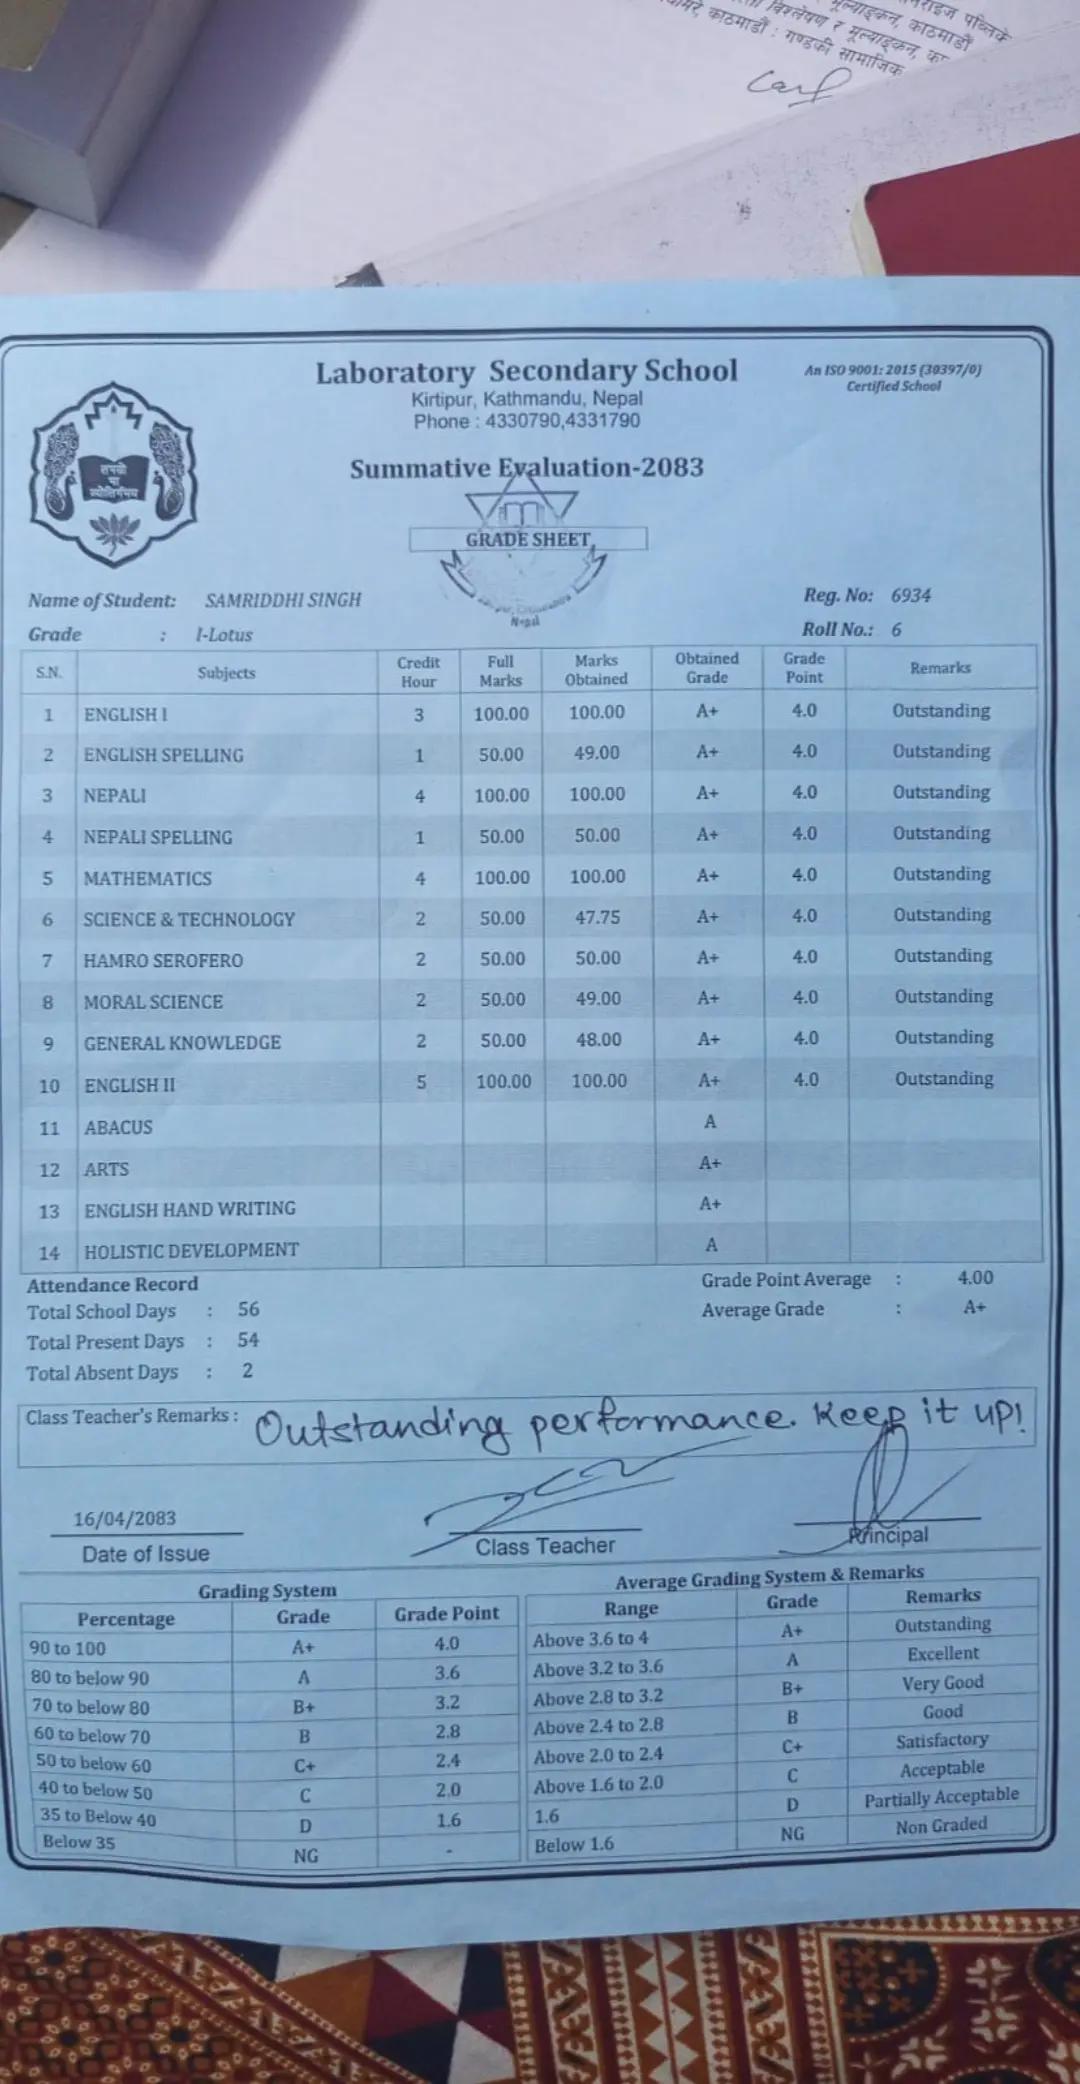 राइज पब्लिके
मूल्याङ्कन, काठमाडौं
विश्लेषण र मूल्याङ्कन, का
काठमाडौं : गण्डकी सामाजिक
Laboratory Secondary School
An ISO 9001: 2015 (30397/0)
Certified School
Kirtipur, Kathmandu, Nepal
Phone : 4330790,4331790
Summative Evaluation-2083
तमसो
मा
ज्योतिर्गमय
GRADE SHEET
Nepal
Name of Student: SAMRIDDHI SINGH Reg. No: 6934
Grade : I-Lotus Roll No.: 6
S.N. Subjects Credit Hour Full Marks Marks Obtained Obtained Grade Grade Point Remarks
1 ENGLISH I 3 100.00 100.00 A+ 4.0 Outstanding
2 ENGLISH SPELLING 1 50.00 49.00 A+ 4.0 Outstanding
3 NEPALI 4 100.00 100.00 A+ 4.0 Outstanding
4 NEPALI SPELLING 1 50.00 50.00 A+ 4.0 Outstanding
5 MATHEMATICS 4 100.00 100.00 A+ 4.0 Outstanding
6 SCIENCE & TECHNOLOGY 2 50.00 47.75 A+ 4.0 Outstanding
7 HAMRO SEROFERO 2 50.00 50.00 A+ 4.0 Outstanding
8 MORAL SCIENCE 2 50.00 49.00 A+ 4.0 Outstanding
9 GENERAL KNOWLEDGE 2 50.00 48.00 A+ 4.0 Outstanding
10 ENGLISH II 5 100.00 100.00 A+ 4.0 Outstanding
11 ABACUS A
12 ARTS A+
13 ENGLISH HAND WRITING A+
14 HOLISTIC DEVELOPMENT A
Attendance Record Grade Point Average : 4.00
Total School Days : 56 Average Grade : A+
Total Present Days : 54
Total Absent Days : 2
Class Teacher's Remarks : Outstanding performance. Keep it up!
16/04/2083
Date of Issue Class Teacher Principal
Grading System Average Grading System & Remarks
Percentage Grade Grade Point Range Grade Remarks
90 to 100 A+ 4.0 Above 3.6 to 4 A+ Outstanding
80 to below 90 A 3.6 Above 3.2 to 3.6 A Excellent
70 to below 80 B+ 3.2 Above 2.8 to 3.2 B+ Very Good
60 to below 70 B 2.8 Above 2.4 to 2.8 B Good
50 to below 60 C+ 2.4 Above 2.0 to 2.4 C+ Satisfactory
40 to below 50 C 2.0 Above 1.6 to 2.0 C Acceptable
35 to Below 40 D 1.6 1.6 D Partially Acceptable
Below 35 NG - Below 1.6 NG Non Graded